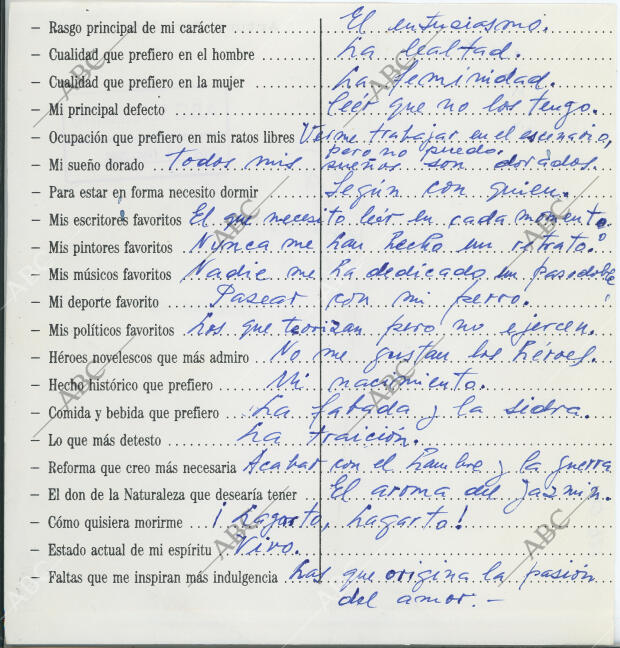 — Rasgo principal de mi carácter El entusiasmo.
— Cualidad que prefiero en el hombre La lealtad.
— Cualidad que prefiero en la mujer La feminidad.
— Mi principal defecto Creer que no los tengo.
— Ocupación que prefiero en mis ratos libres Verme trabajar en el escenario,
pero no puedo.
— Mi sueño dorado Todos mis sueños son dorados.
— Para estar en forma necesito dormir Según con quien.
— Mis escritores favoritos El que necesito leer en cada momento.
— Mis pintores favoritos Nunca me han hecho un retrato.
— Mis músicos favoritos Nadie me ha dedicado un pasodoble
— Mi deporte favorito Pasear con mi perro.
— Mis políticos favoritos Los que teorizan pero no ejercen.
— Héroes novelescos que más admiro No me gustan los héroes.
— Hecho histórico que prefiero Mi nacimiento.
— Comida y bebida que prefiero La fabada y la sidra.
— Lo que más detesto La traición.
— Reforma que creo más necesaria Acabar con el hambre y la guerra
— El don de la Naturaleza que desearía tener El aroma del jazmín.
— Cómo quisiera morirme ¡Lagarto, lagarto!
— Estado actual de mi espíritu Vivo.
— Faltas que me inspiran más indulgencia Las que origina la pasión
del amor.—
ABC